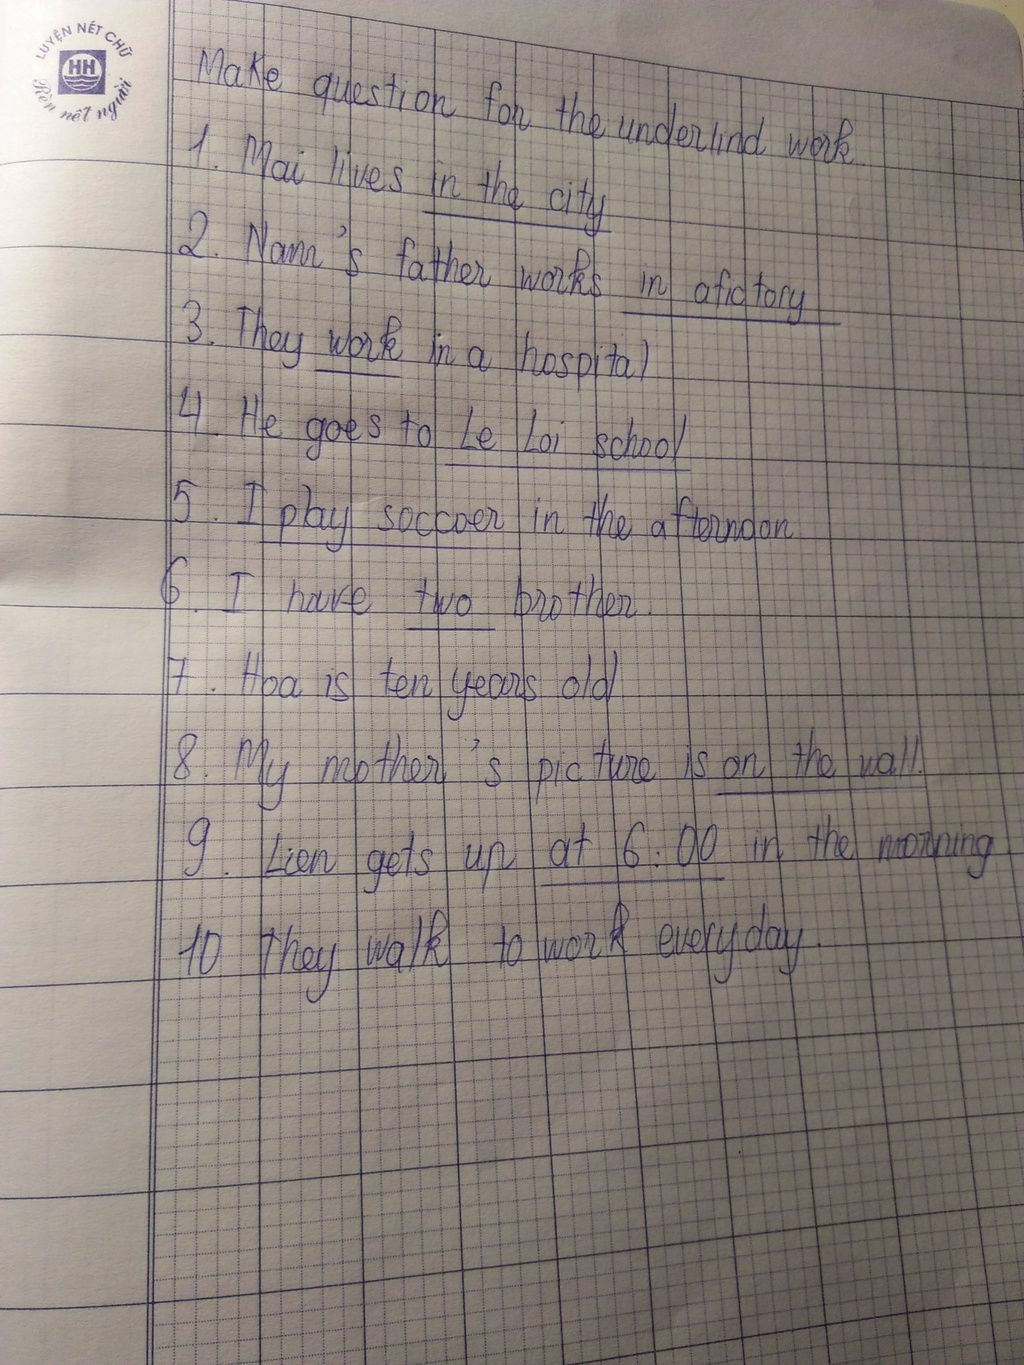 LUYỆN NÉT CHỮ
HH
Rèn nết người
Make question for the underlind work
1. Mai lives in the city
2. Nam's father works in afictory
3. They work in a hospital
4. He goes to Le Loi school
5. I play soccoer in the afternoon
6. I have two brother.
7. Hoa is ten years old
8. My mother's picture is on the wall.
9. Lien gets up at 6:00 in the morning
10 They walk to work everyday.